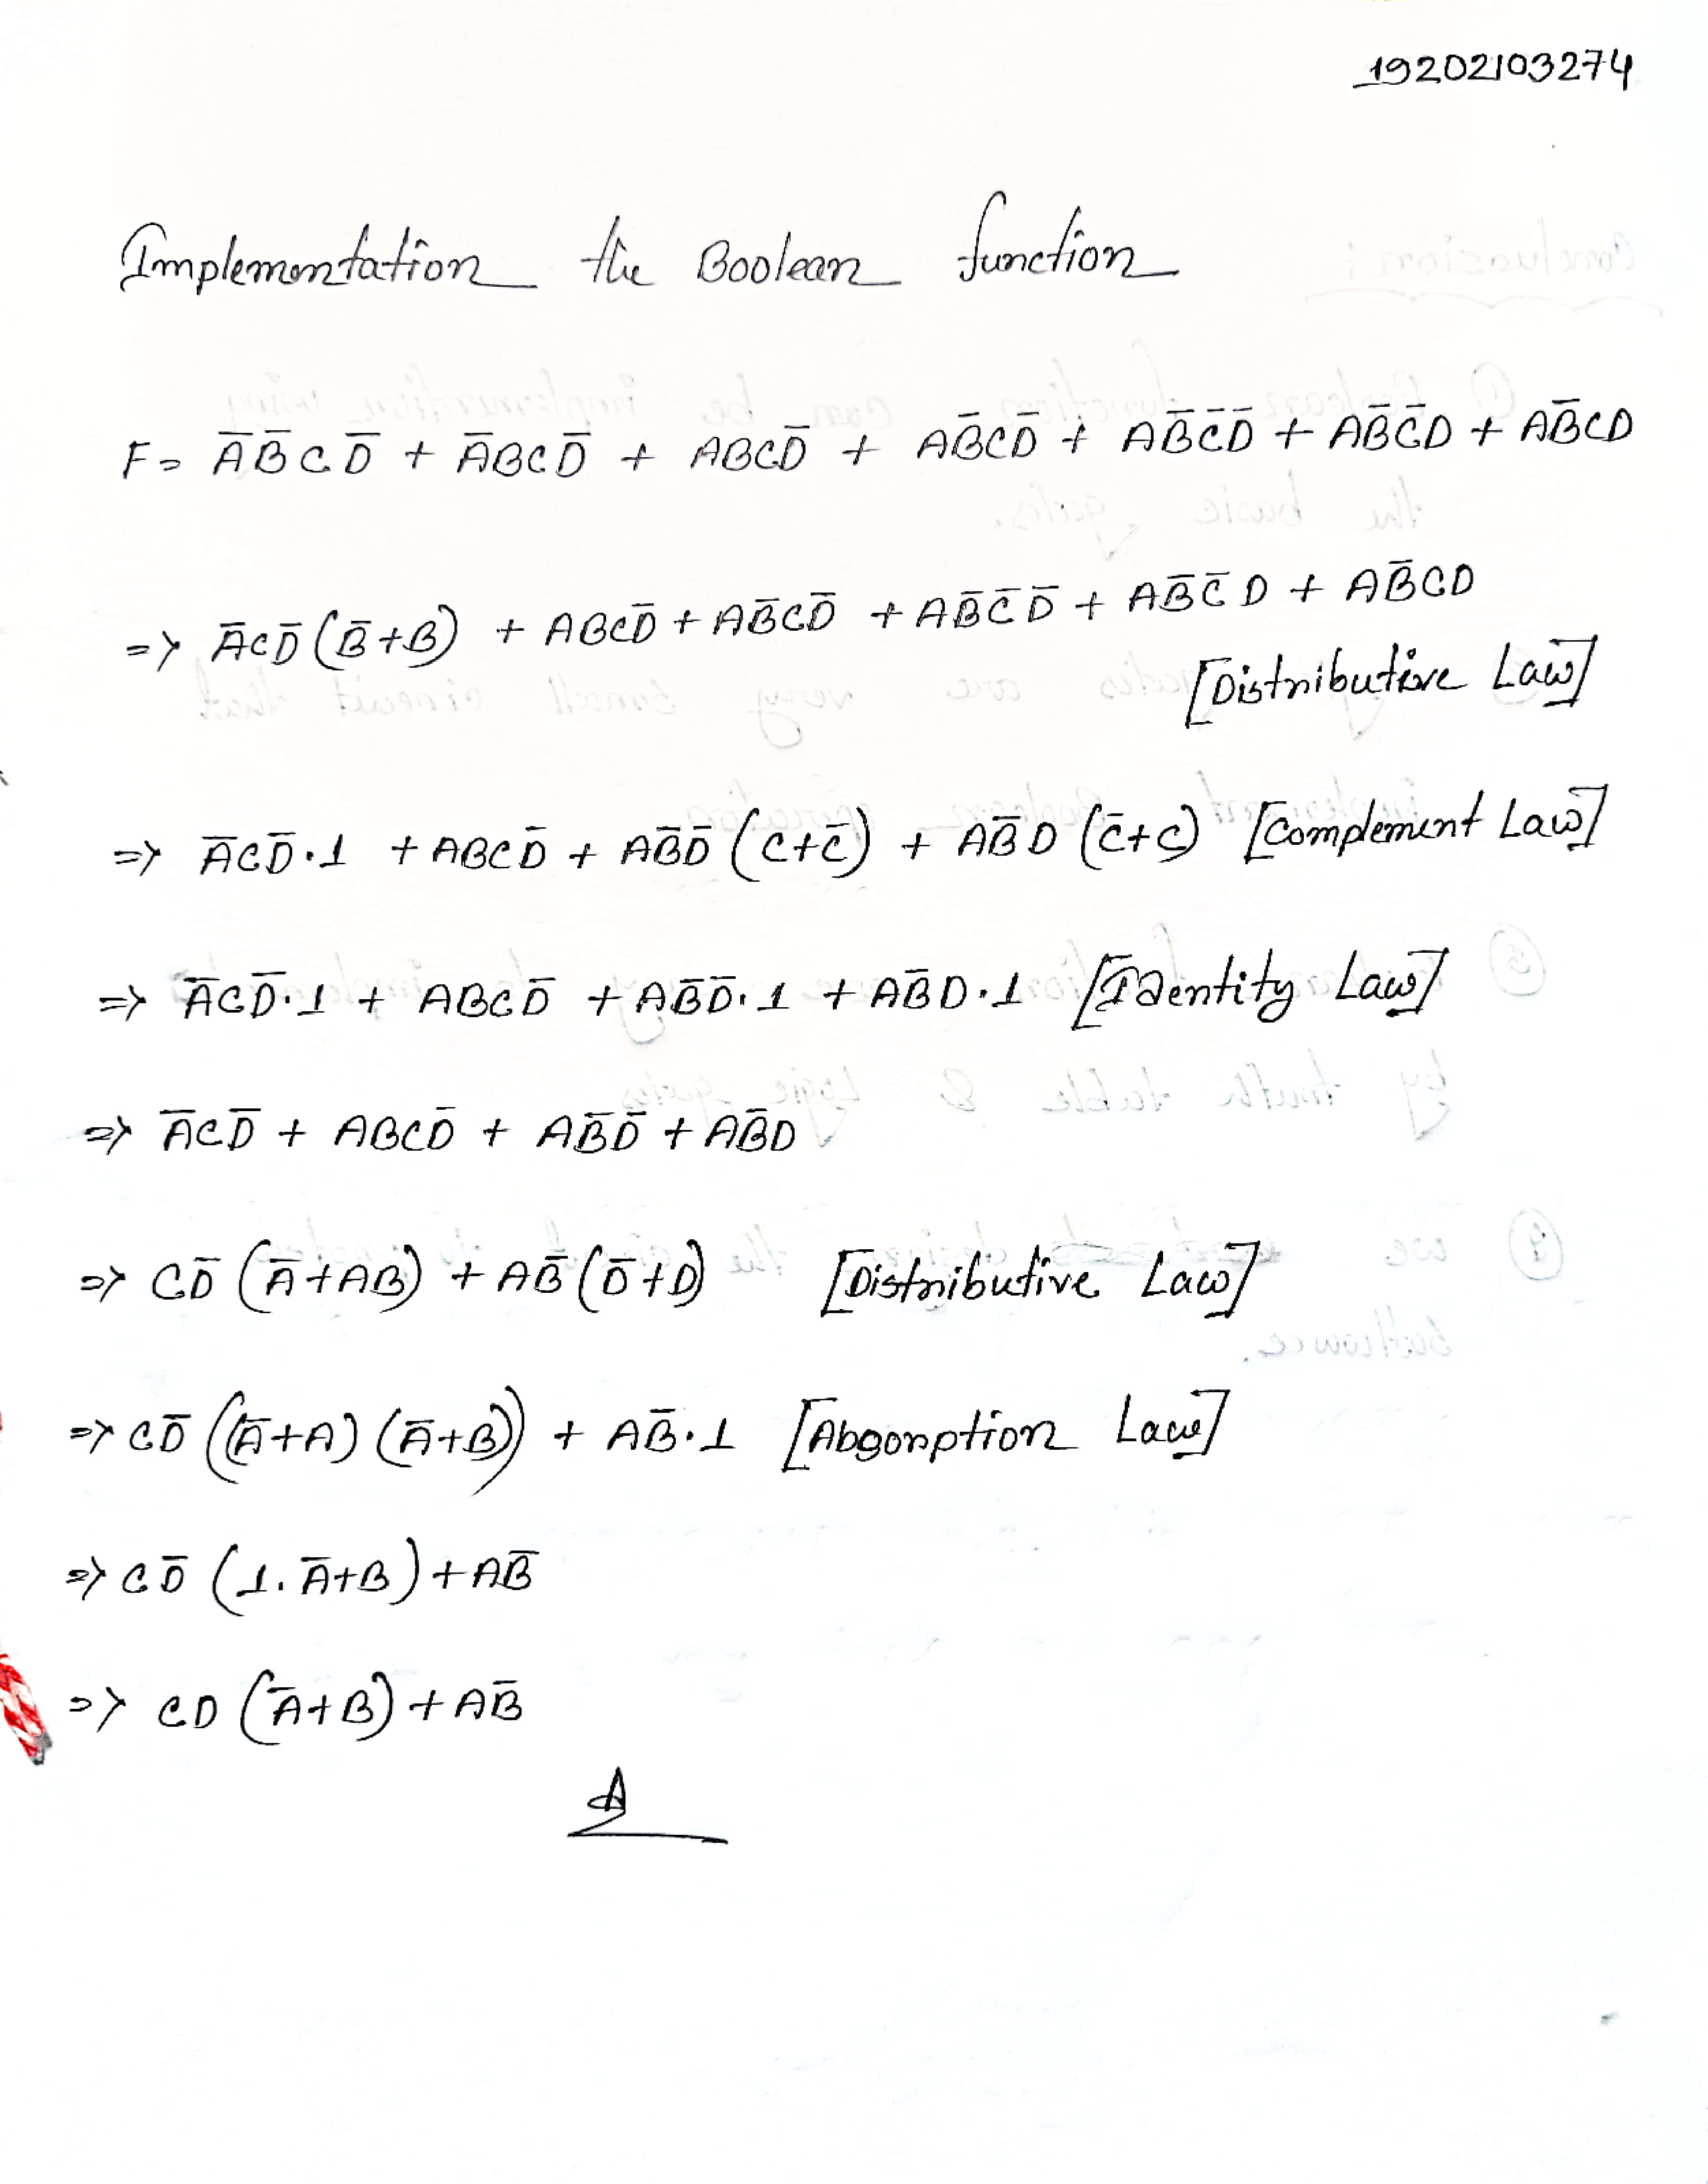 19202103274
Implementation the Boolean function
F = A̅B̅CD̅ + A̅BCD̅ + ABCD̅ + AB̅CD̅ + AB̅C̅D̅ + AB̅C̅D + AB̅CD
=> A̅CD̅(B̅+B) + ABCD̅ + AB̅CD̅ + AB̅C̅D̅ + AB̅C̅D + AB̅CD
[Distributive Law]
=> A̅CD̅.1 + ABCD̅ + AB̅D̅(C+C̅) + AB̅D(C̅+C) [Complement Law]
=> A̅CD̅.1 + ABCD̅ + AB̅D̅.1 + AB̅D.1 [Identity Law]
=> A̅CD̅ + ABCD̅ + AB̅D̅ + AB̅D
=> CD̅(A̅+AB) + AB̅(D̅+D) [Distributive Law]
=> CD̅((A̅+A)(A̅+B)) + AB̅.1 [Absorption Law]
=> CD̅(1.A̅+B) + AB̅
=> CD(A̅+B) + AB̅